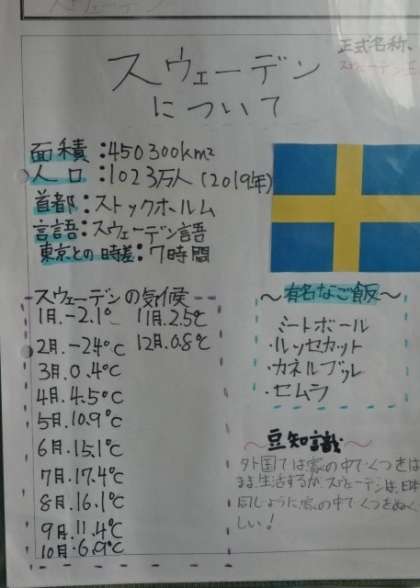 スウェーデン
について
正式名称、
面積:450300km²
人口:1023万人(2019年)
首都:ストックホルム
言語:スウェーデン語
東京との時差:7時間
スウェーデンの気候
1月.-2.1℃ 11月.2.5℃
2月.-2.4℃ 12月.0.8℃
3月.0.4℃
4月.4.5℃
5月.10.9℃
6月.15.1℃
7月.17.4℃
8月.16.1℃
9月.11.4℃
10月.6.9℃
～有名なご飯～
ミートボール
・ルッセカット
・カネルブッレ
・セムラ
～豆知識～
外国では家の中でくつをは
まま生活するが、スウェーデンは、日本
同じように家の中でくつをぬぐ
しい!